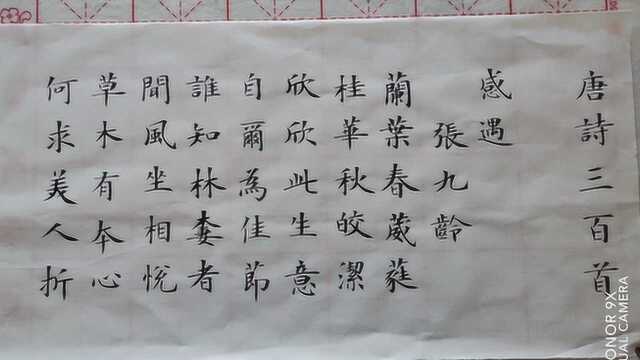 唐詩三百首
感遇
張九齡
蘭葉春葳蕤
桂華秋皎潔
欣欣此生意
自爾為佳節
誰知林棲者
聞風坐相悅
草木有夲心
何求美人折
ONOR 9X
UAL CAMERA